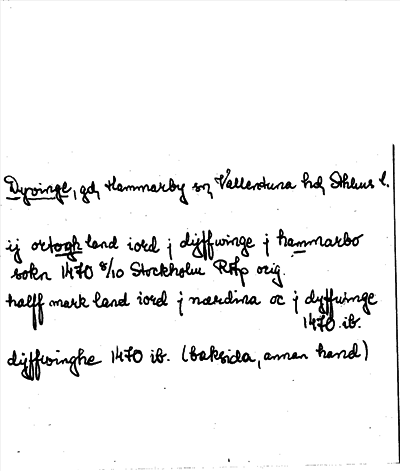 Dyvinge, gd, Hammarby sn, Vallentuna hd, Sthlms l.
ij ortogh land iord j dijffwinge j hammarbo
sokn 1470 8/10 Stockholm RAp orig.
halff mark land iord j nærdina oc j dyffwinge
1470 ib.
dijffwinghe 1470 ib. (baksida, annan hand)